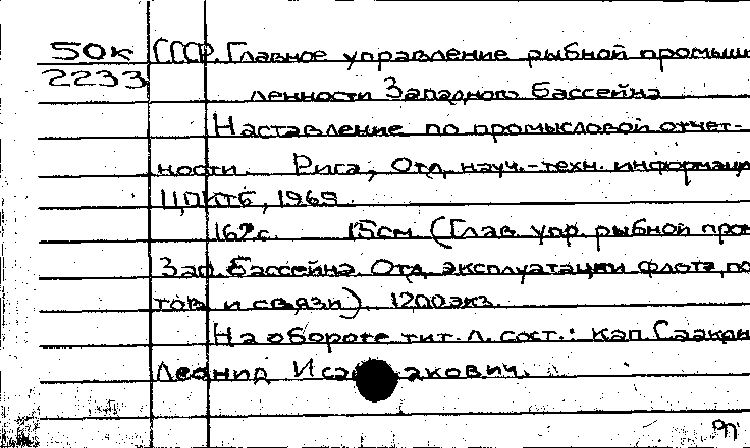 50к СССР. Главное управление рыбной промыш
2233
ленности Западного бассейна
Наставление по промысловой отчет-
ности. Рига, Отд. науч.-техн. информаци
ЦПКТБ, 1969.
162с. 15см (Глав. упр. рыбной пром
Зап. бассейна. Отд. эксплуатации флота, по
тов и связи). 1200экз.
На обороте тит. л. сост.: кап. Саакян
Леонид Исаакович.